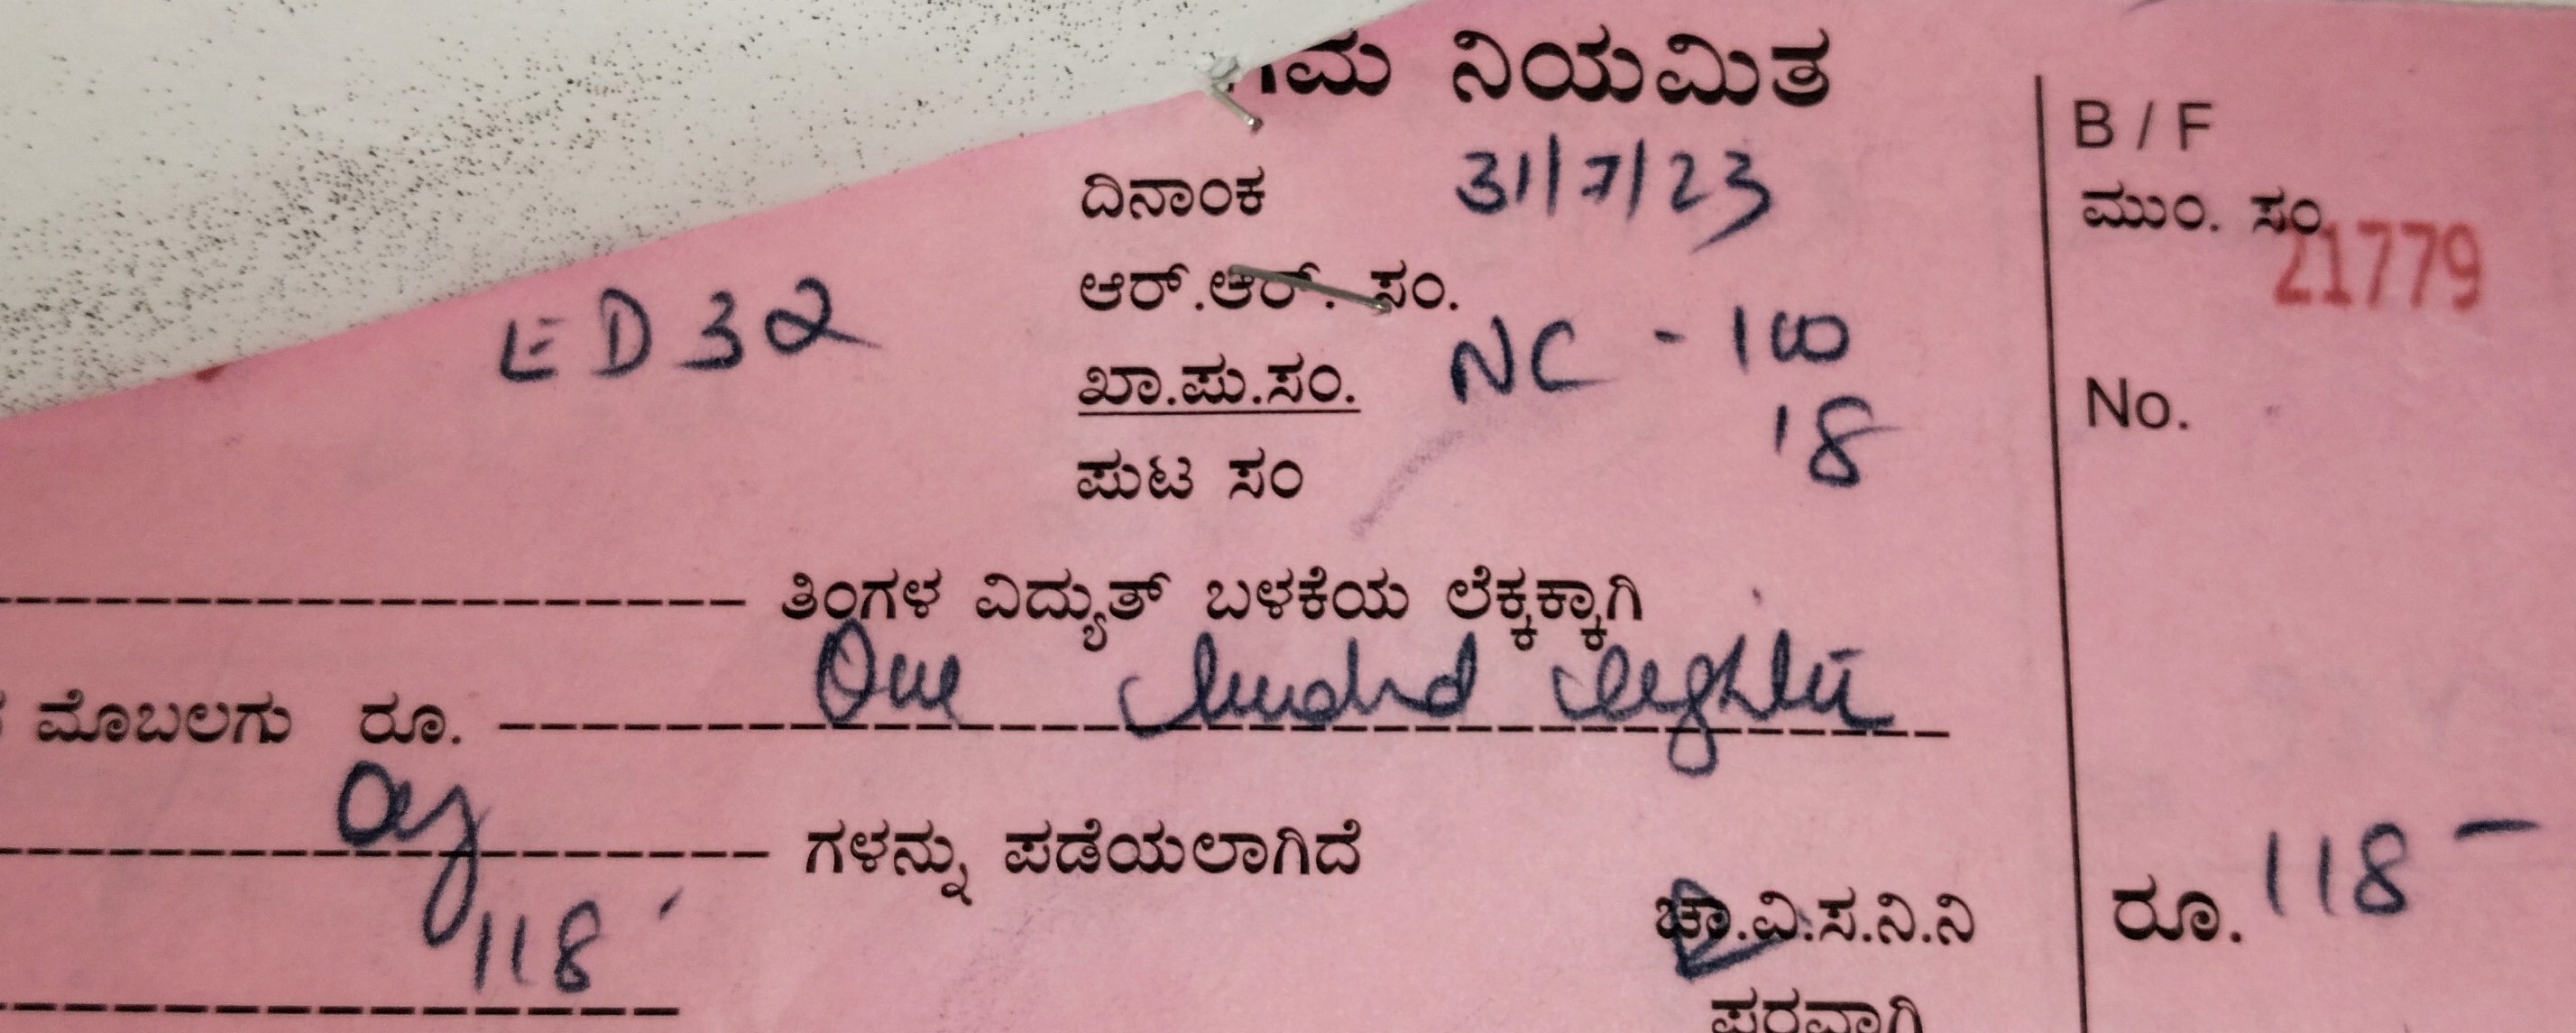 ನಿಯಮಿತ
ದಿನಾಂಕ 31/7/23
ಆರ್.ಆರ್. ಸಂ.
ED 32
ಖಾ.ಪು.ಸಂ. NC - 100
18
ಪುಟ ಸಂ
ತಿಂಗಳ ವಿದ್ಯುತ್ ಬಳಕೆಯ ಲೆಕ್ಕಕ್ಕಾಗಿ
ಮೊಬಲಗು ರೂ. One hundred eighteen
only ಗಳನ್ನು ಪಡೆಯಲಾಗಿದೆ
118
ಚಾ.ವಿ.ಸ.ನಿ.ನಿ
ಪರವಾಗಿ
B / F
ಮುಂ. ಸಂ.
21779
No.
ರೂ. 118 –